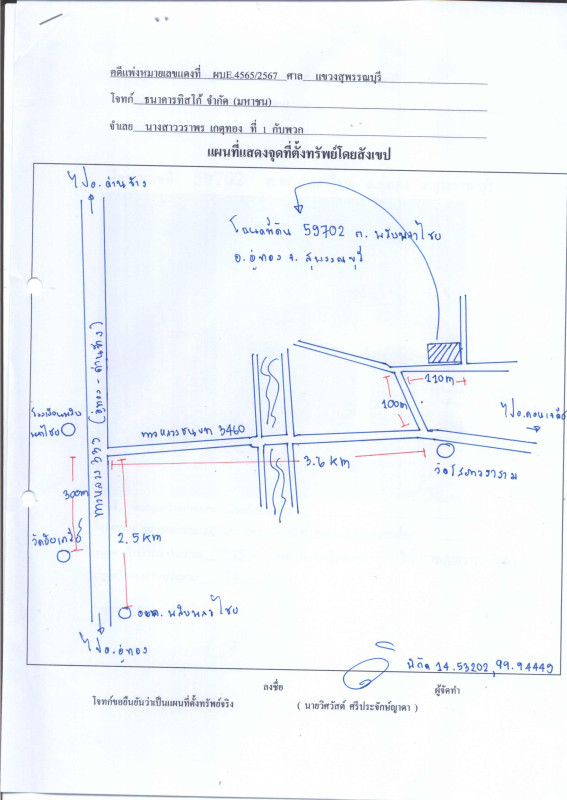 คดีแพ่งหมายเลขแดงที่ ผบE.4565/2567 ศาล แขวงสุพรรณบุรี
โจทก์ ธนาคารทิสโก้ จำกัด (มหาชน)
จำเลย นางสาววราพร เกตุทอง ที่ 1 กับพวก
แผนที่แสดงจุดที่ตั้งทรัพย์โดยสังเขป
ไปอ.ด่านช้าง
โฉนดที่ดิน 59702 ต. พลับพลาไชย
อ. อู่ทอง จ. สุพรรณบุรี
ทางหลวง 333 (อู่ทอง - ด่านช้าง)
110m
100m
ไปอ.ดอนเจดีย์
ทางหลวงชนบท 3460
3.6 KM
วัดโสภาวราราม
300m
2.5 KM
อบต. พลับพลาไชย
ไปอ.อู่ทอง
พิกัด 14.53202, 99.94449
ลงชื่อ ผู้จัดทำ
โจทก์ขอยืนยันว่าเป็นแผนที่ตั้งทรัพย์จริง ( นายวิศวัสต์ ศรีประจักษ์ญาดา )